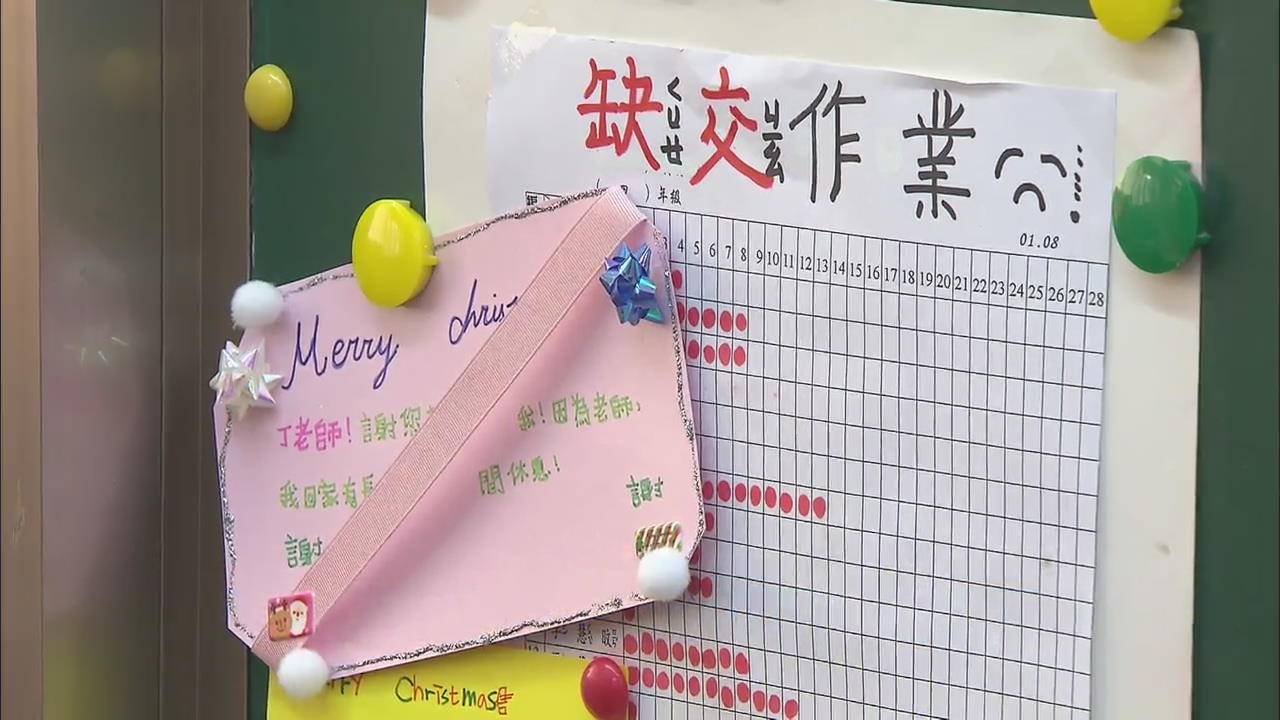 缺ㄑㄩㄝ交ㄐㄠ作業
年級
01.08
3 4 5 6 7 8 9 10 11 12 13 14 15 16 17 18 19 20 21 22 23 24 25 26 27 28
Merry chris
丁老師！謝您 我！因為老師，
我回家有 間休息！
謝
謝
Christmas